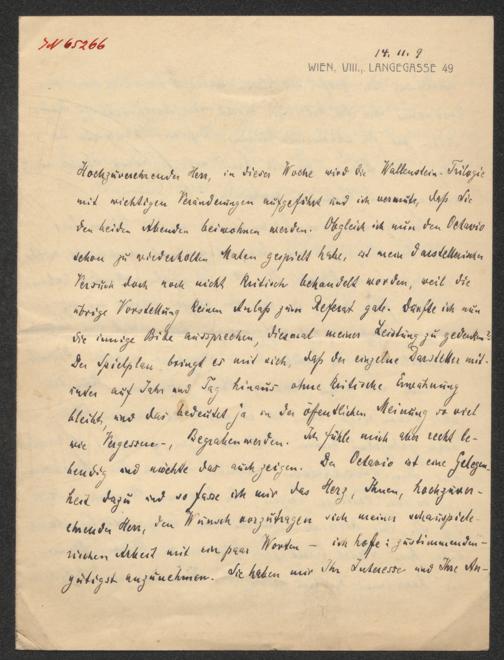 IN 65266
14. 11. 9
WIEN, VIII., LANGEGASSE 49
Hochzuverehrender Herr, in dieser Woche wird die Wallenstein-Trilogie
mit wichtigen Veränderungen aufgeführt und ich vermute, daß Sie
den beiden Abenden beiwohnen werden. Obgleich ich nun den Octavio
schon zu wiederholten Malen gespielt habe, ist mein darstellerischer
Versuch doch noch nicht kritisch behandelt worden, weil die
übrige Vorstellung keinen Anlaß zum Referat gab. Dürfte ich nun
die innige Bitte aussprechen, diesmal meiner Leistung zu gedenken?
Der Spielplan bringt es mit sich, daß der einzelne Darsteller mit-
unter auf Jahr und Tag hinaus ohne kritische Erwähnung
bleibt, und das bedeutet ja in der öffentlichen Meinung so viel
wie Vergessen-, Begrabenwerden. Ich fühle mich aber recht le-
bendig und möchte das auch zeigen. Der Octavio ist eine Gelegen-
heit dazu und so fasse ich mir das Herz, Ihnen, hochzuver-
ehrender Herr, den Wunsch vorzutragen sich meiner schauspiele-
rischen Arbeit mit ein paar Worten – ich hoffe: zustimmenden –
gütigst anzunehmen. Sie haben mir Ihr Interesse und Ihre An-